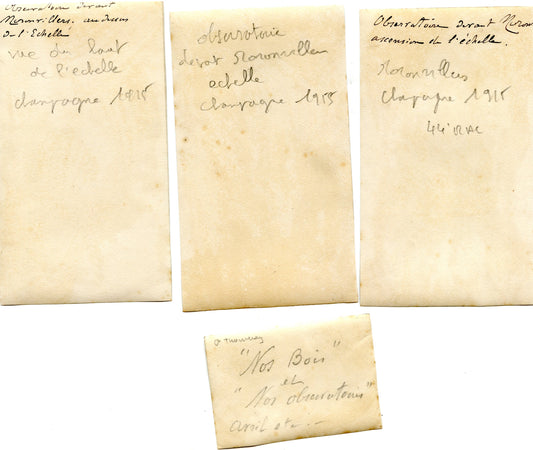 Observatoire devant
Moronvillers. au dessus
de l'Echelle
vue du haut
de l'echelle
Champagne 1915
Observatoire
devat Moronvillers
echelle
Champagne 1915
Observatoire devant Moron
ascension de l'échelle.
Moronvillers
Champagne 1915
44e RAC
"Nos Bois"
et
"Nos observatoires"
avril etc. -